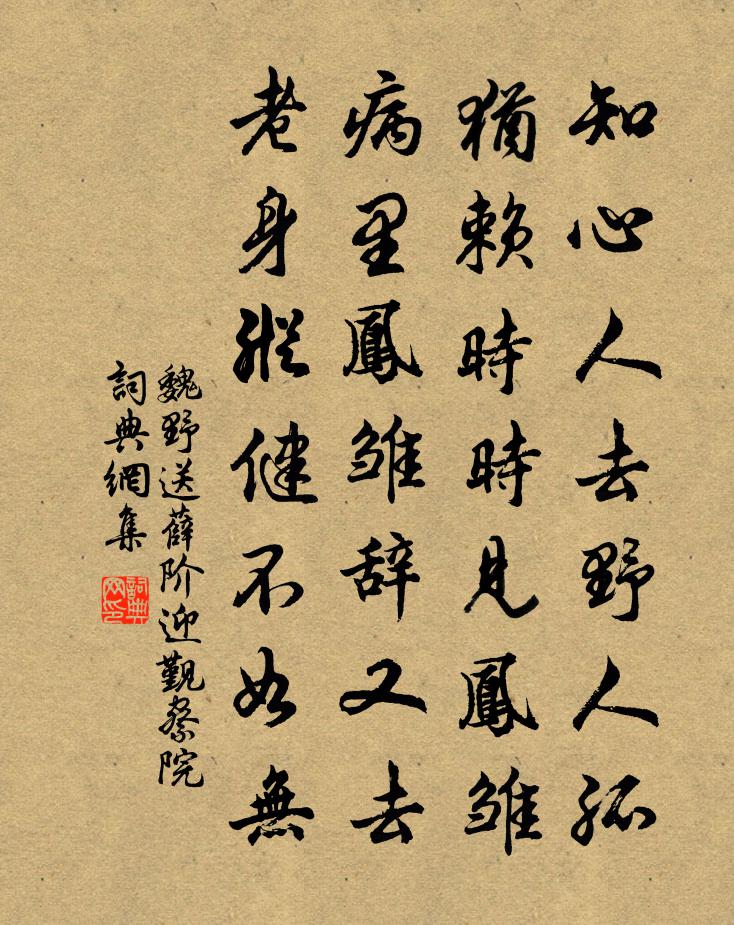 知心人去野人孤
猶賴時時見鳳雏
病里鳳雏辞又去
老身縱健不如無
魏野送薛阶迎觐察院
詞典網集
詞典网印